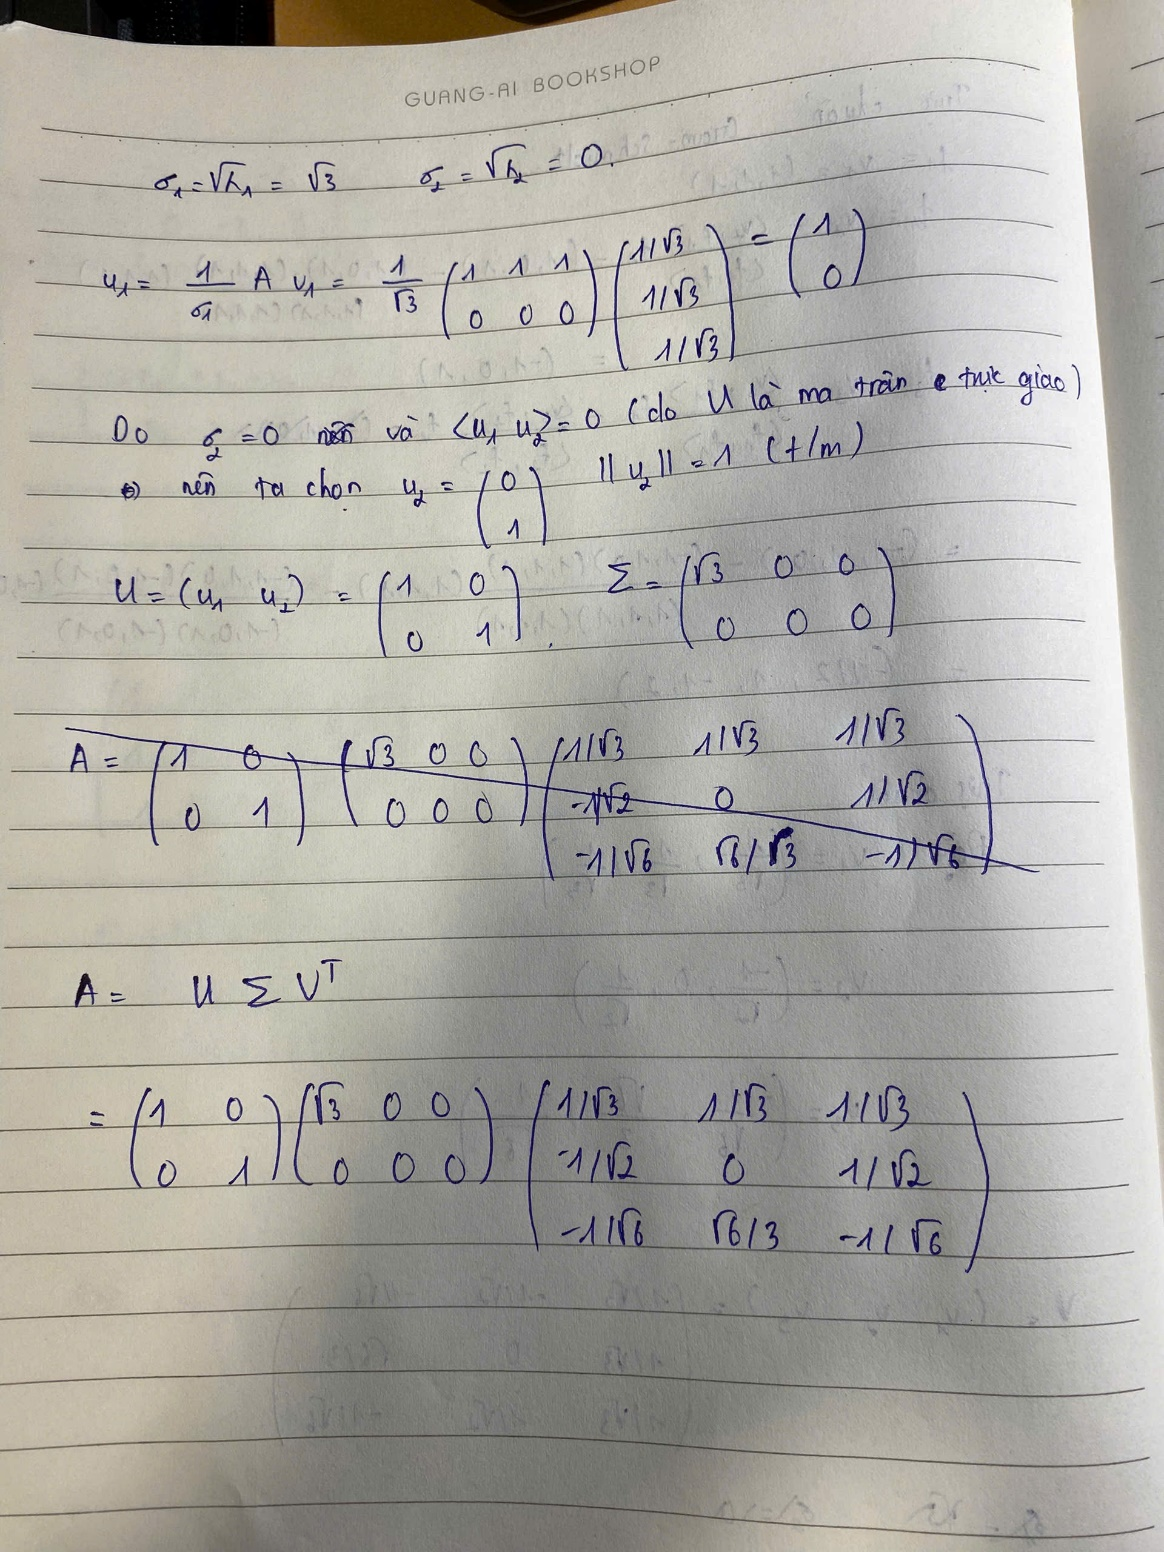 GUANG-AI BOOKSHOP
σ₁ = √λ₁ = √3   σ₂ = √λ₂ = 0.
u₁ = 1/σ₁ A v₁ = 1/√3 (1 1 1; 0 0 0) (1/√3; 1/√3; 1/√3) = (1; 0)
Do σ₂ = 0 và <u₁ u₂> = 0 (do U là ma trận trực giao)
nên ta chọn u₂ = (0; 1)   ||u₂|| = 1 (t/m)
U = (u₁ u₂) = (1 0; 0 1).   Σ = (√3 0 0; 0 0 0)
A = (1 0; 0 1) (√3 0 0; 0 0 0) (1/√3 1/√3 1/√3; -1/√2 0 1/√2; -1/√6 √6/√3 -1/√6)
A = U Σ Vᵀ
= (1 0; 0 1) (√3 0 0; 0 0 0) (1/√3 1/√3 1/√3; -1/√2 0 1/√2; -1/√6 √6/3 -1/√6)